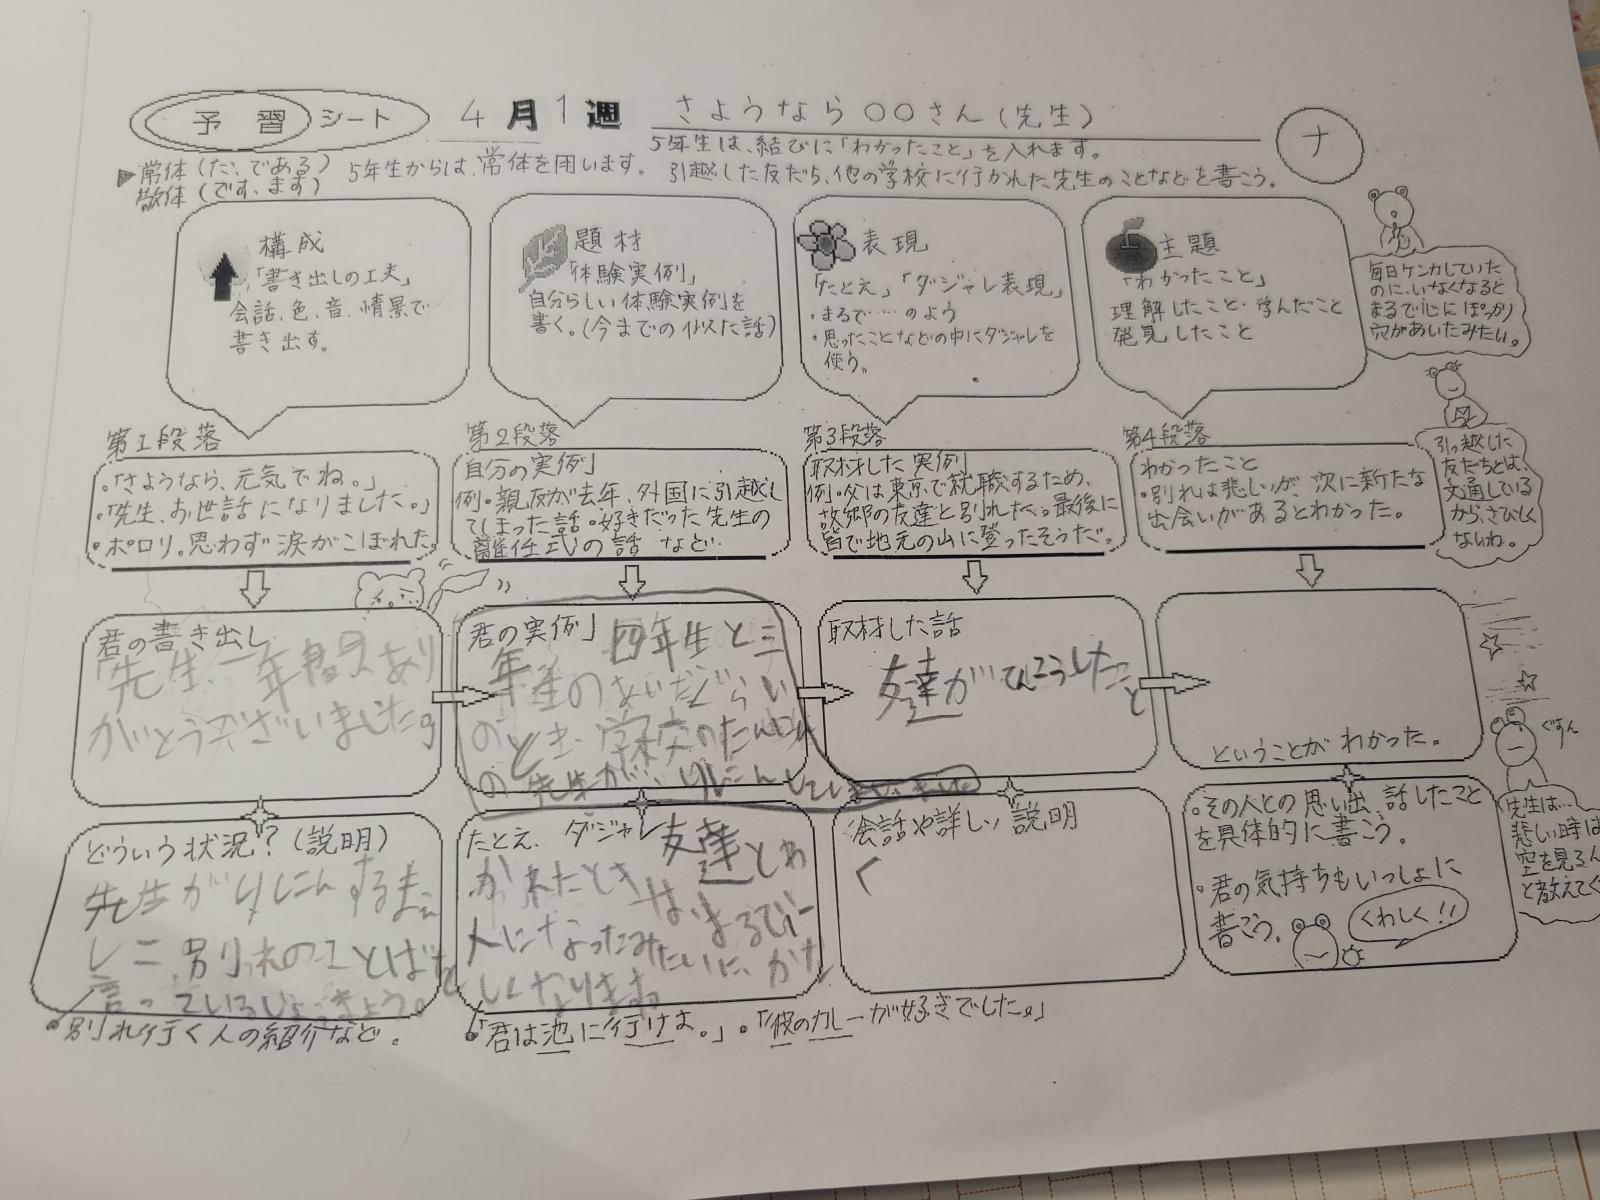 予習シート 4月1週 さようなら○○さん(先生)
ナ
5年生は、結びに「わかったこと」を入れます。
▶常体(だ、である) 5年生からは、常体を用います。 引越した友だち、他の学校に行かれた先生のことなどを書こう。
敬体(です、ます)
構成
「書き出しの工夫」
会話、色、音、情景で
書き出す。
題材
「体験実例」
自分らしい体験実例を
書く。(今までの似た話)
表現
「たとえ」「ダジャレ表現」
・まるで……のよう
・思ったことなどの中にダジャレを
使う。
主題
「わかったこと」
理解したこと・学んだこと
発見したこと
毎日ケンカしていた
のに、いなくなると
まるで心にぽっかり
穴があいたみたい。
第1段落
・「さようなら、元気でね。」
・「先生、お世話になりました。」
・ポロリ。思わず涙がこぼれた。
第2段落
自分の実例」
例・親友が去年、外国に引越し
てしまった話・好きだった先生の
離任式の話 など…
第3段落
取材した実例」
例・父は東京で就職するため、
故郷の友達と別れた。最後に
皆で地元の山に登ったそうだ。
第4段落
わかったこと
・別れは悲しいが、次に新たな
出会いがあるとわかった。
引っ越した
友だちとは、
文通している
から、さびしく
ないわ。
君の書き出し
「先生、一年間あり
がとうございました。
君の実例」 四年生と三
年生のあいだぐらい
のとき、学校のたんにん
の先生が、りにんしてしまいました
取材した話
友達がひっこうしたこ
と
ということがわかった。
ぐすん
どういう状況?(説明)
先生がりにんするまえ
に、別れのことばを
言っているじょうきょう。
・別れ行く人の紹介など。
たとえ、ダジャレ 友達とわ
かれたときは、まるで一
人になったみたいに、かな
しくなります。
・「君は池に行けよ。」・「彼のカレーが好きでした。」
会話や詳しい説明
「
・その人との思い出、話したこと
を具体的に書こう。
・君の気持ちもいっしょに
書こう。
くわしく!!
先生は…
悲しい時は
空を見る
と教えてく